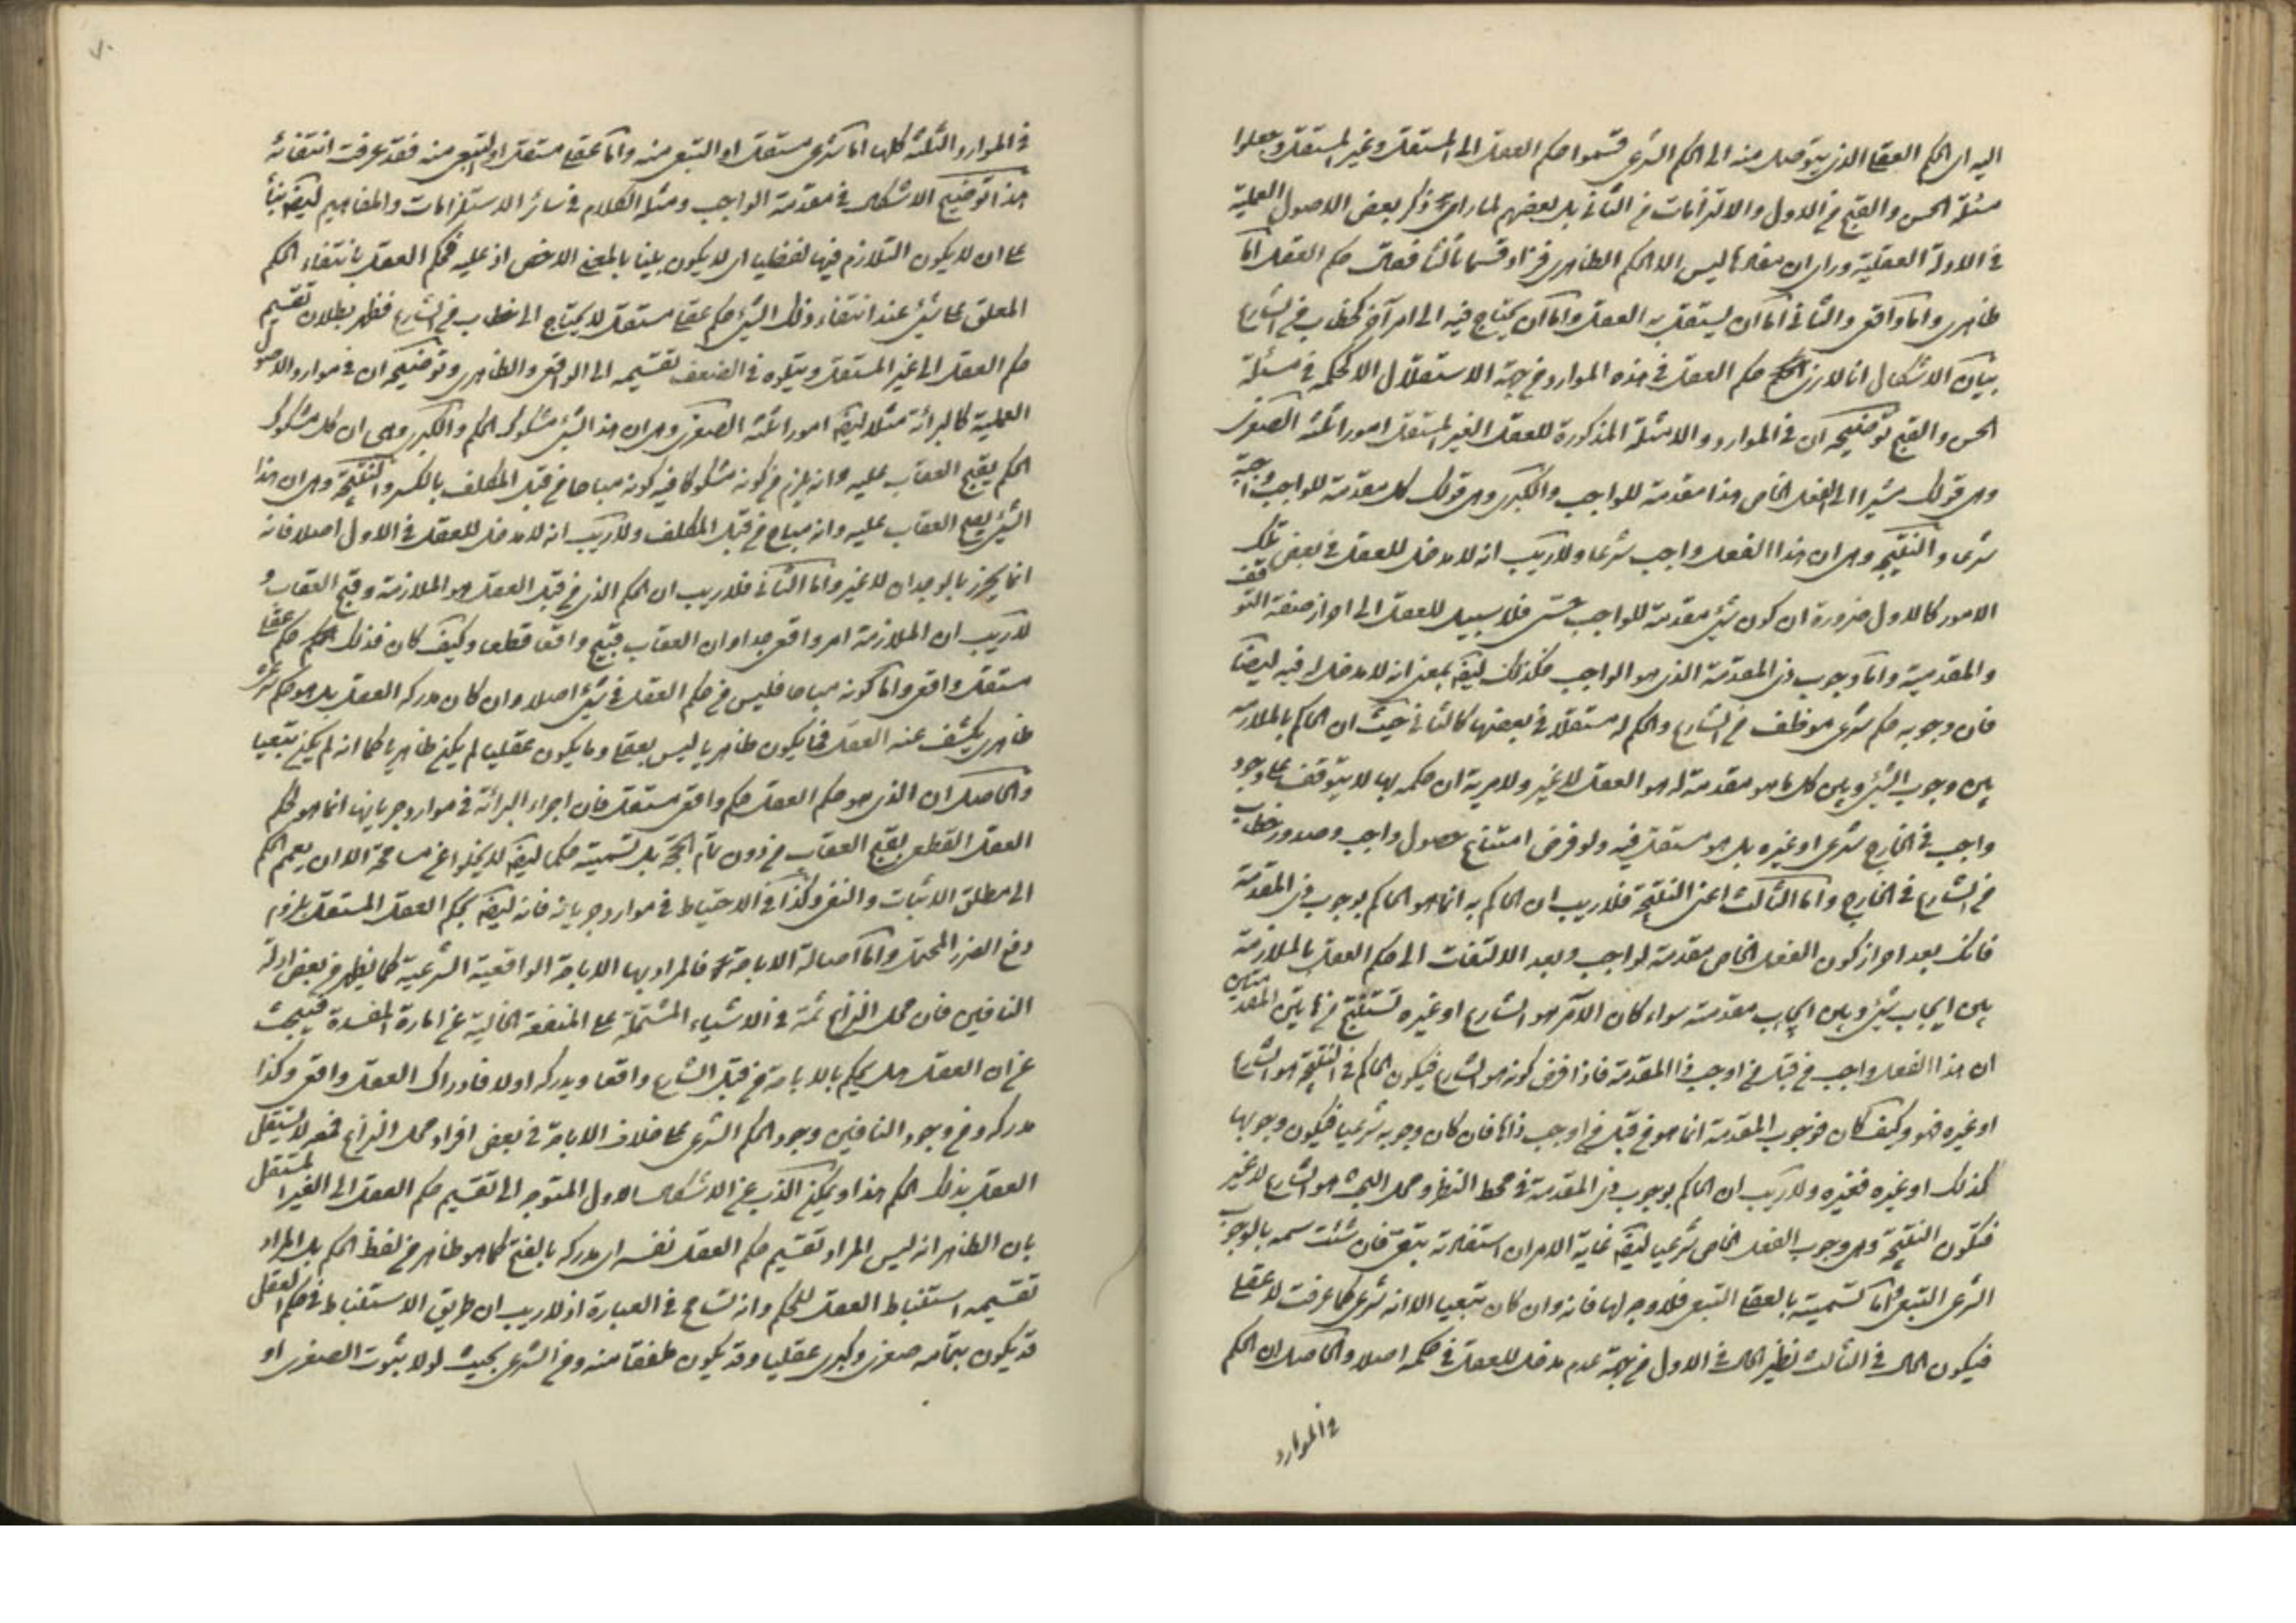 اليه اى الحكم العقلى الذى يتوصل منه الى الحكم الشرعى قسموا حكم العقل الى المستقل وغير المستقل وجعلوا
مسئلة الحسن والقبح فى الاول والالتزامات فى الثانى بل بعضهم لما راى ذكر بعض الاصول العملية
فى الادلة العقلية وراى ان مفادها ليس الا الحكم الظاهرى فزاد قسما ثالثا فقال حكم العقل اما
ظاهرى واما واقعى والثانى اما ان يستقل به العقل واما ان يحتاج فيه الى امر آخر كخطاب من الشارع
بيان الاشكال انا لا نرى حكم العقل فى هذه الموارد من جهة الاستقلال الا كحكمه فى مسئلة
الحسن والقبح توضيحه ان فى الموارد والامثلة المذكورة للعقل الغير المستقل امورا ثلثة الصغرى
وهى قولك مشيرا الى الفعل الخاص هذا مقدمة للواجب والكبرى وهى قولك كل مقدمة للواجب واجبة
شرعا والنتيجة وهى ان هذا الفعل واجب شرعا ولاريب انه لا مدخل للعقل فى بعض تلك
الامور كالاول ضرورة ان كون شئ مقدمة للواجب حسى فلا سبيل للعقل الى احراز صفة التوقف
والمقدمية واما وجوب ذى المقدمة الذى هو الواجب فكذلك ايضا بمعنى انه لا مدخل له فيه ايضا
فان وجوبه حكم شرعى موظف من الشارع والحكم له مستقلا فى بعضها كالثانى حيث ان الحاكم بالملازمة
بين وجوب الشئ وبين كل ما هو مقدمة له هو العقل لا غير ولا مرية ان حكمه بها لا يتوقف على وجود
واجب فى الخارج شرعى او غيره بل هو مستقل فيه ولو فرض امتناع حصول واجب وصدور خطاب
من الشارع فى الخارج واما الثالث اعنى النتيجة فلاريب ان الحاكم به انما هو الحاكم بوجوب ذى المقدمة
فانك بعد احراز كون الفعل الخاص مقدمة لواجب وبعد الالتفات الى حكم العقل بالملازمة
بين ايجاب شئ وبين ايجاب مقدمته سواء كان الآمر هو الشارع او غيره تستنتج من هاتين المقدمتين
ان هذا الفعل واجب من قبل من اوجب ذا المقدمة فاذا فرض كونه هو الشارع فيكون الحاكم فى النتيجة هو الشارع
او غيره فهو وكيف كان فوجوب المقدمة انما هو من قبل من اوجب ذاها فان كان وجوبه شرعيا فيكون وجوبها
كذلك او غيره فغيره ولاريب ان الحاكم بوجوب ذى المقدمة فى محط النظر ومحل البحث هو الشارع لا غير
فتكون النتيجة وهى وجوب الفعل الخاص شرعيا ايضا غاية الامر ان استفادته بتبعى فان شئت سمه بالوجوب
الشرعى التبعى واما تسميته بالعقلى التبعى فلا وجه لها فانه وان كان تبعيا الا انه شرعى كما عرفت لا عقلى
فيكون الحال فى الثالث نظير الحال فى الاول من جهة عدم مدخل للعقل فى حكمه اصلا والحاصل ان الحكم
فى الموارد
٧٠
فى الموارد الثلثة كلها اما شرعى مستقل او التبعى منه واما عقلى مستقل او التبعى منه فقد عرفت انتفائه
هذا توضيح الاشكال فى مقدمة الواجب ومثله الكلام فى سائر الاستلزامات والمفاهيم ايضا بناء
على ان لا يكون التلازم فيها لفظيا اى لا يكون بينا بالمعنى الاخص اذ عليه فحكم العقل بانتفاء الحكم
المعلق على شئ عند انتفاء ذلك الشئ حكم عقلى مستقل لا يحتاج الى خطاب من الشارع فظهر بطلان تقسيم
حكم العقل الى غير المستقل ويتلوه فى الضعف تقسيمه الى الواقعى والظاهرى وتوضيحه ان فى موارد الاصول
العملية كالبرائة مثلا ايضا امورا ثلثة الصغرى وهى ان هذا الشئ مشكوك الحكم والكبرى وهى ان كل مشكوك
الحكم يقبح العقاب عليه وانه يلزم من كونه مشكوكا فيه كونه مباحا من قبل المكلف بالكسر والنتيجة وهى ان هذا
الشئ يقبح العقاب عليه وانه مباح من قبل المكلف ولاريب انه لا مدخل للعقل فى الاول اصلا فانه
انما يحرز بالوجدان لا غير واما الثانى فلاريب ان الحكم الذى من قبل العقل هو الملازمة وقبح العقاب و
لاريب ان الملازمة امر واقعى جدا وان العقاب قبيح واقعا قطعا وكيف كان فذلك حكم عقلى
مستقل واقعى واما كونه مباحا فليس من حكم العقل فى شئ اصلا وان كان مدركه العقل بل هو حكم شرعى
ظاهرى يكشف عنه العقل فما يكون ظاهريا ليس بعقلى وما يكون عقليا لم يكن ظاهريا كما انه لم يكن تبعيا
والحاصل ان الذى هو حكم العقل حكم واقعى مستقل فان اجراء البرائة فى موارد جريانها انما هو لحكم
العقل القطعى بقبح العقاب من دون تمام الحجة بل تسميته حكما ايضا لا يخلوا عن مسامحة الا ان يعمم الحكم
الى مطلق الاثبات والنفى وكذا فى الاحتياط فى موارد جريانه فانه ايضا بحكم العقل المستقل بلزوم
دفع الضرر المحتمل واما اصالة الاباحة فالمراد بها الاباحة الواقعية الشرعية كما يظهر من بعض ادلة
النافين فان محل النزاع ثمة فى الاشياء المشتملة على المنفعة الخالية عن امارة المفسدة فيبحث
عن ان العقل هل يحكم بالاباحة من قبل الشارع واقعا ويدركه اولا فادراك العقل واقعى وكذا
مدركه ومن وجود النافين وجود الحكم الشرعى على خلاف الاباحة فى بعض افراد محل النزاع فمعه لا يستقل
العقل بذلك الحكم هذا ويمكن الذب عن الاشكال الاول المتوجه الى تقسيم حكم العقل الى الغير المستقل
بان الظاهر انه ليس المراد تقسيم حكم العقل نفسه اى مدركه بالفتح كما هو ظاهر من لفظ الحكم بل المراد
تقسيمه استنباط العقل للحكم وانه تسامح فى العبارة اذ لاريب ان طريق الاستنباط فى حكم العقل
قد يكون بتمامه صغرى وكبرى عقليا وقد يكون ملفقا منه ومن الشرعى بحيث لولا ثبوت الصغرى او